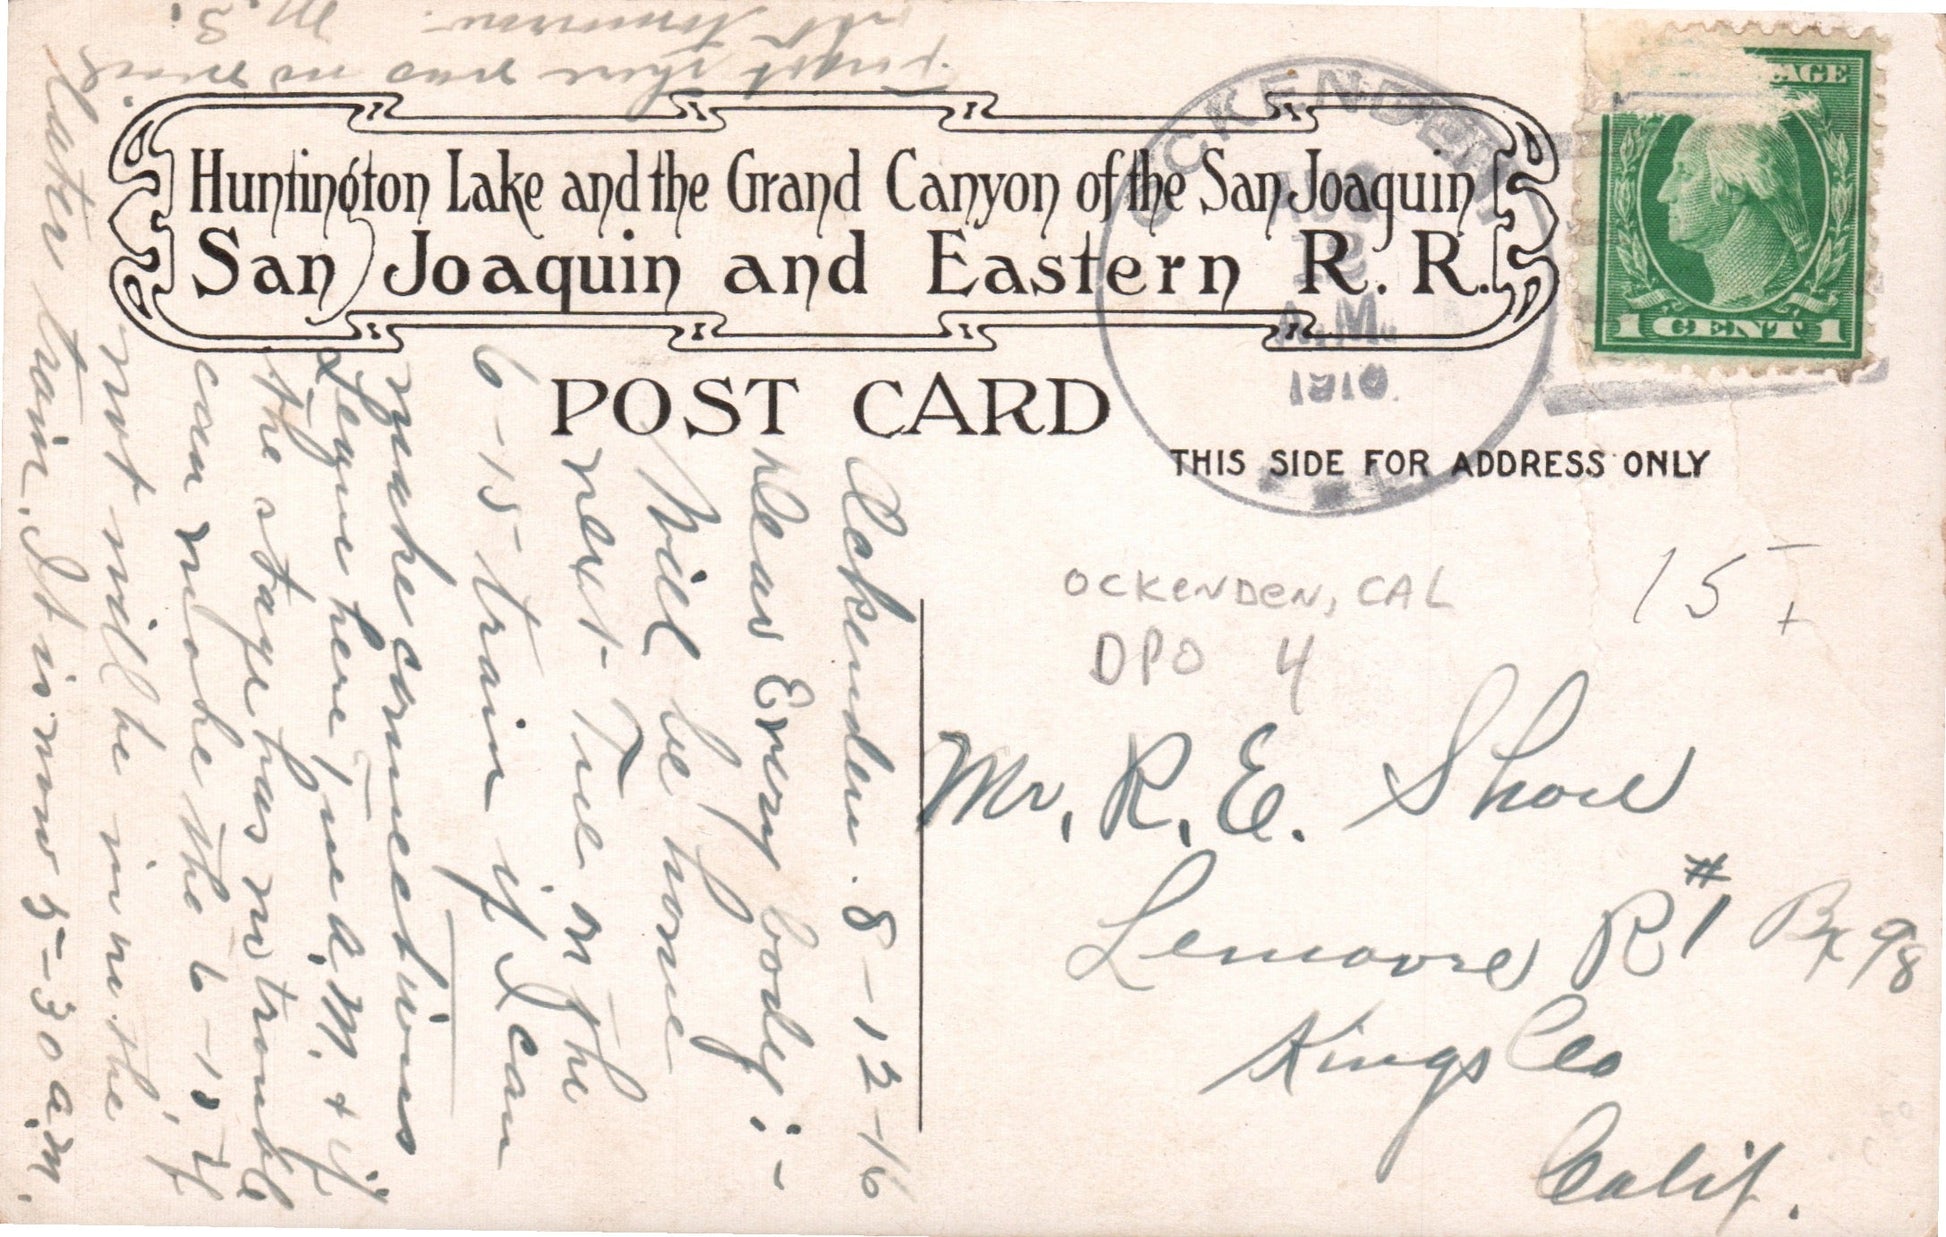 Huntington Lake and the Grand Canyon of the San Joaquin
San Joaquin and Eastern R. R.
POST CARD
THIS SIDE FOR ADDRESS ONLY
OCKENDEN
AUG
12
A.M.
1916
CAL
AGE
1 CENT 1
OCKENDEN, CAL
DPO 4
15
Mr. R. E. Shore
Lemoore R #1 Bx 98
Kings Co
Calif.
Ockenden. 8-12-16
Dear Every body:-
Will be home
next Tue on the
6-15 train if I can
make connections
Leave here Tue a.m. & if
the stage has no trouble
can make the 6-15 if
not will be in on the
later train. It is now 5-30 a.m.
Forgot there was no mail
till tomorrow.
M. S.